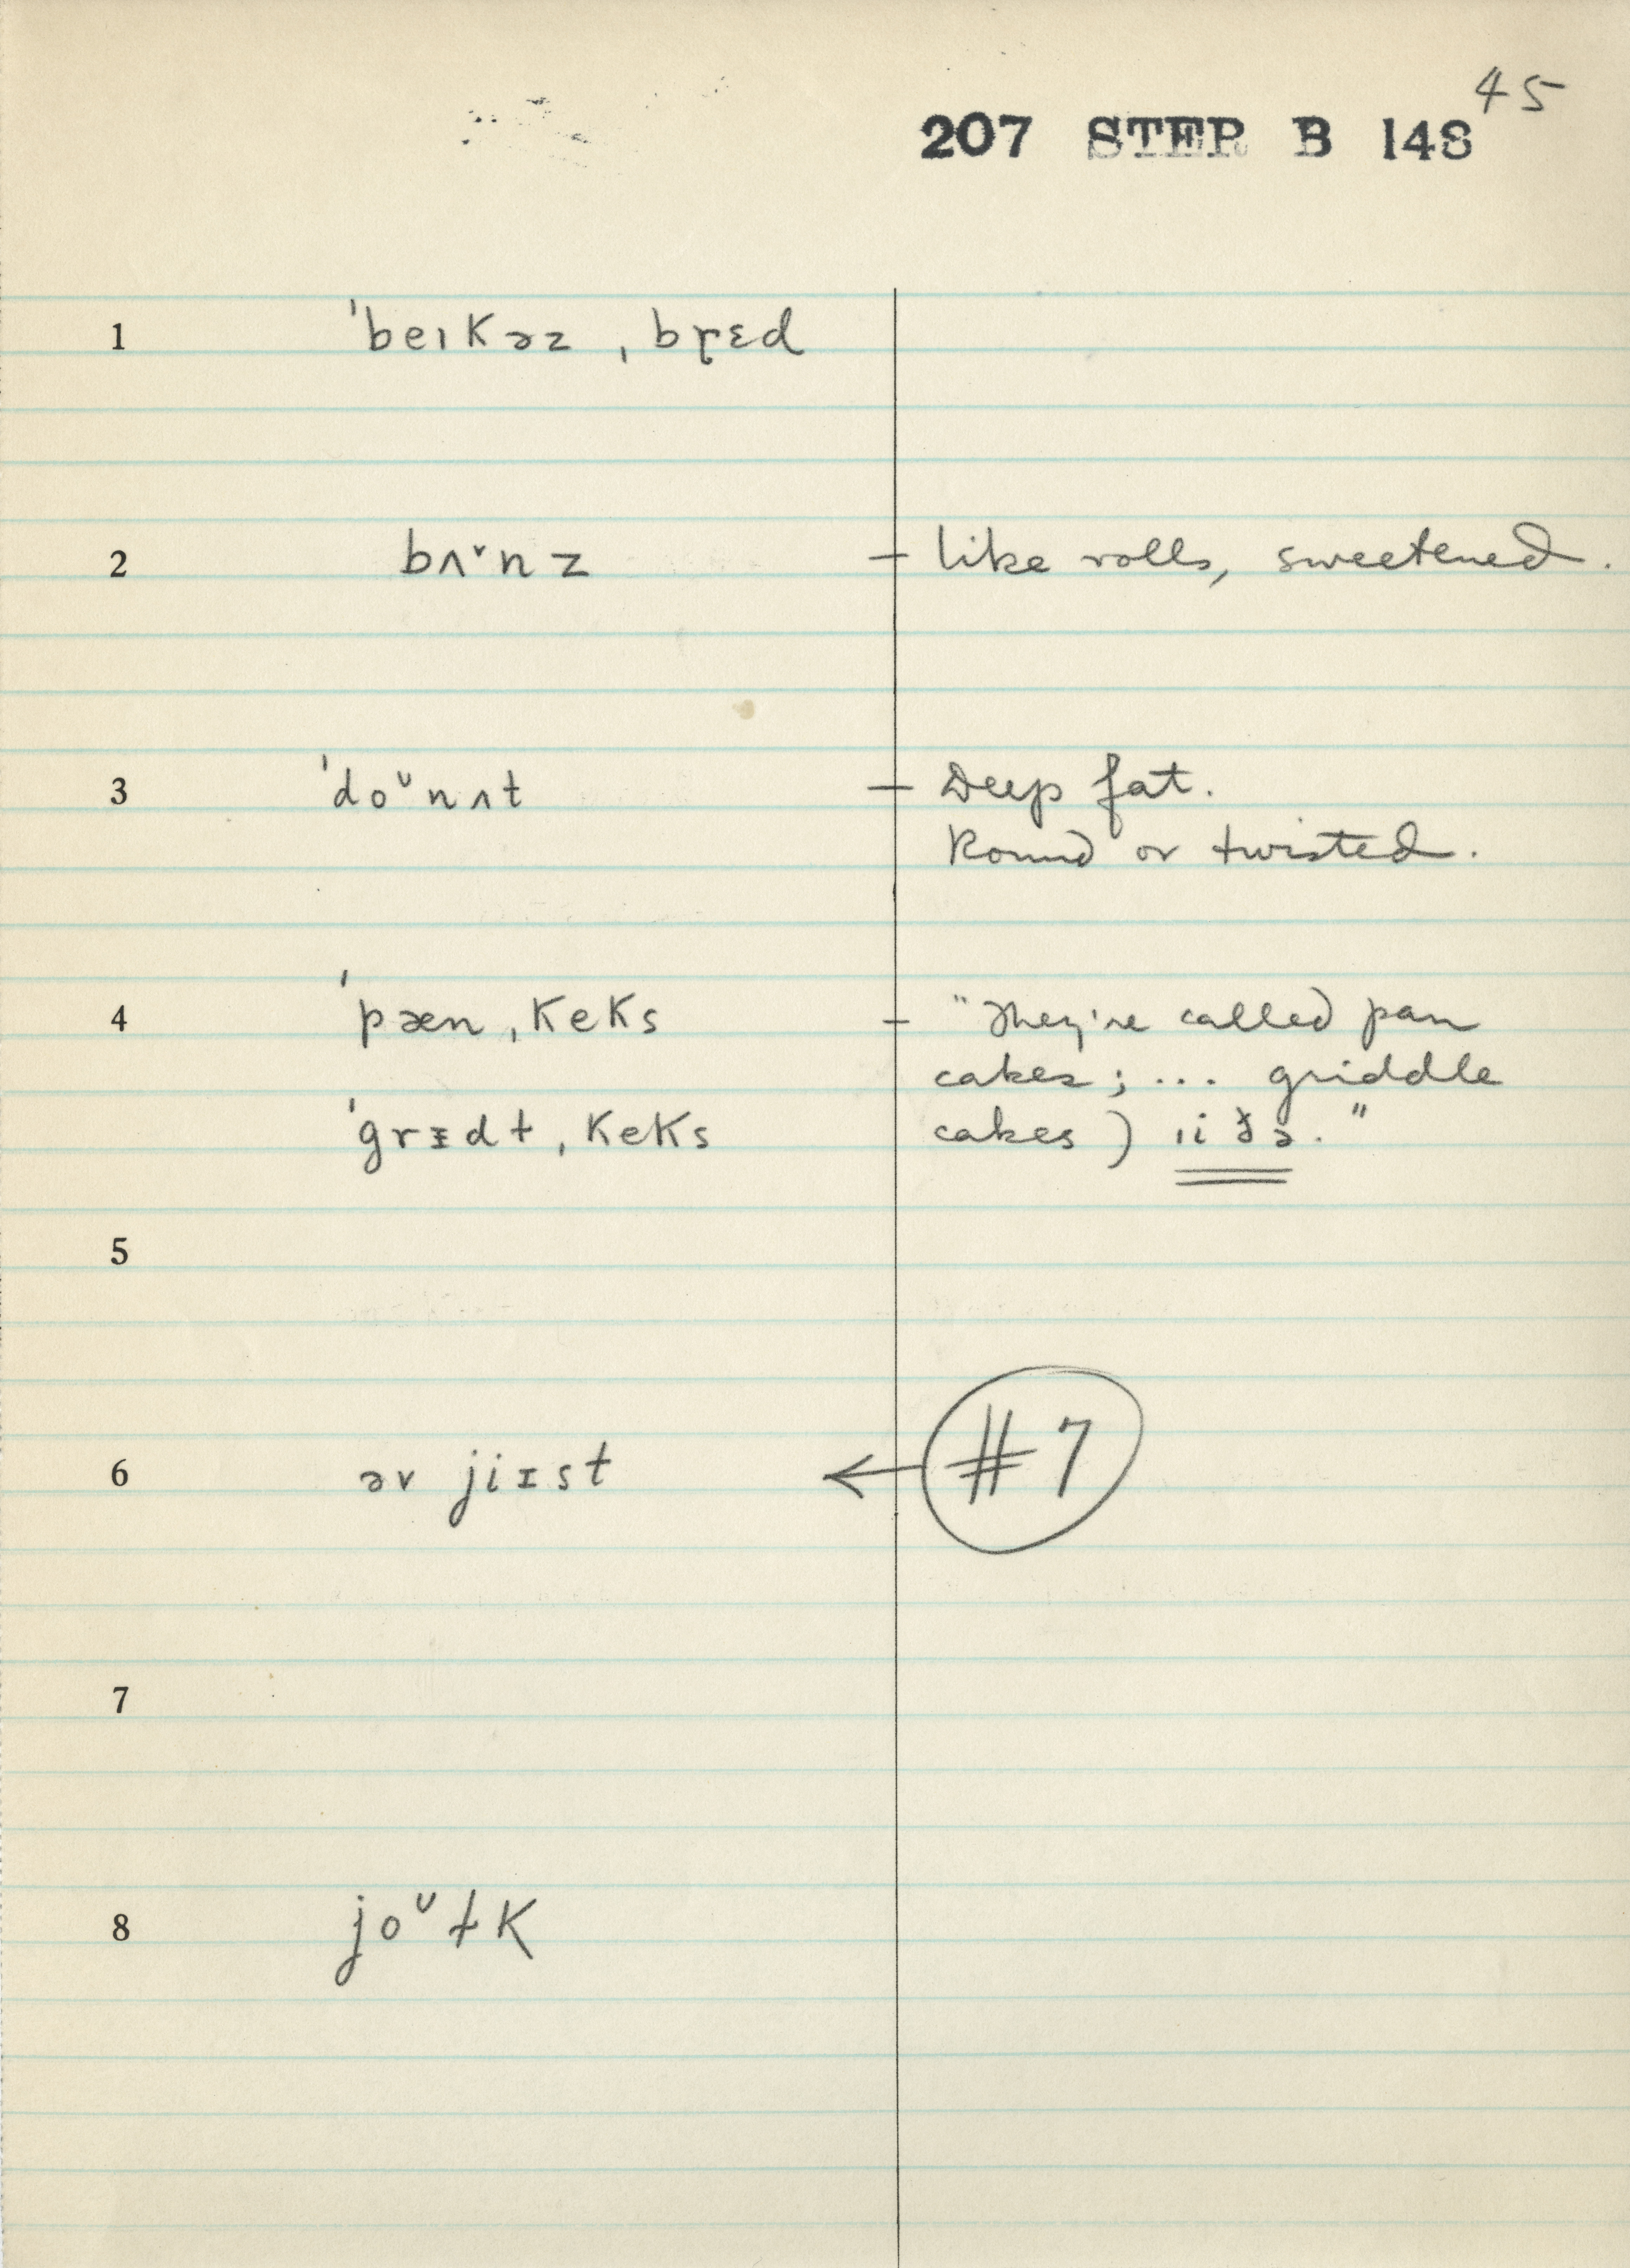 45
207 STEP B 148
1 ˈbeıkəz ˌbɽɛd
2 bʌˇnz – like rolls, sweetened.
3 ˈdoᴗnʌt – Deep fat.
Round or twisted.
4 ˈpæn ˌkeks – "They're called pan
cakes; ... griddle
ˈgrᵻdɫ ˌkeks cakes)
5
6 əv jiɪst ← #7
7
8 joᴗɫk